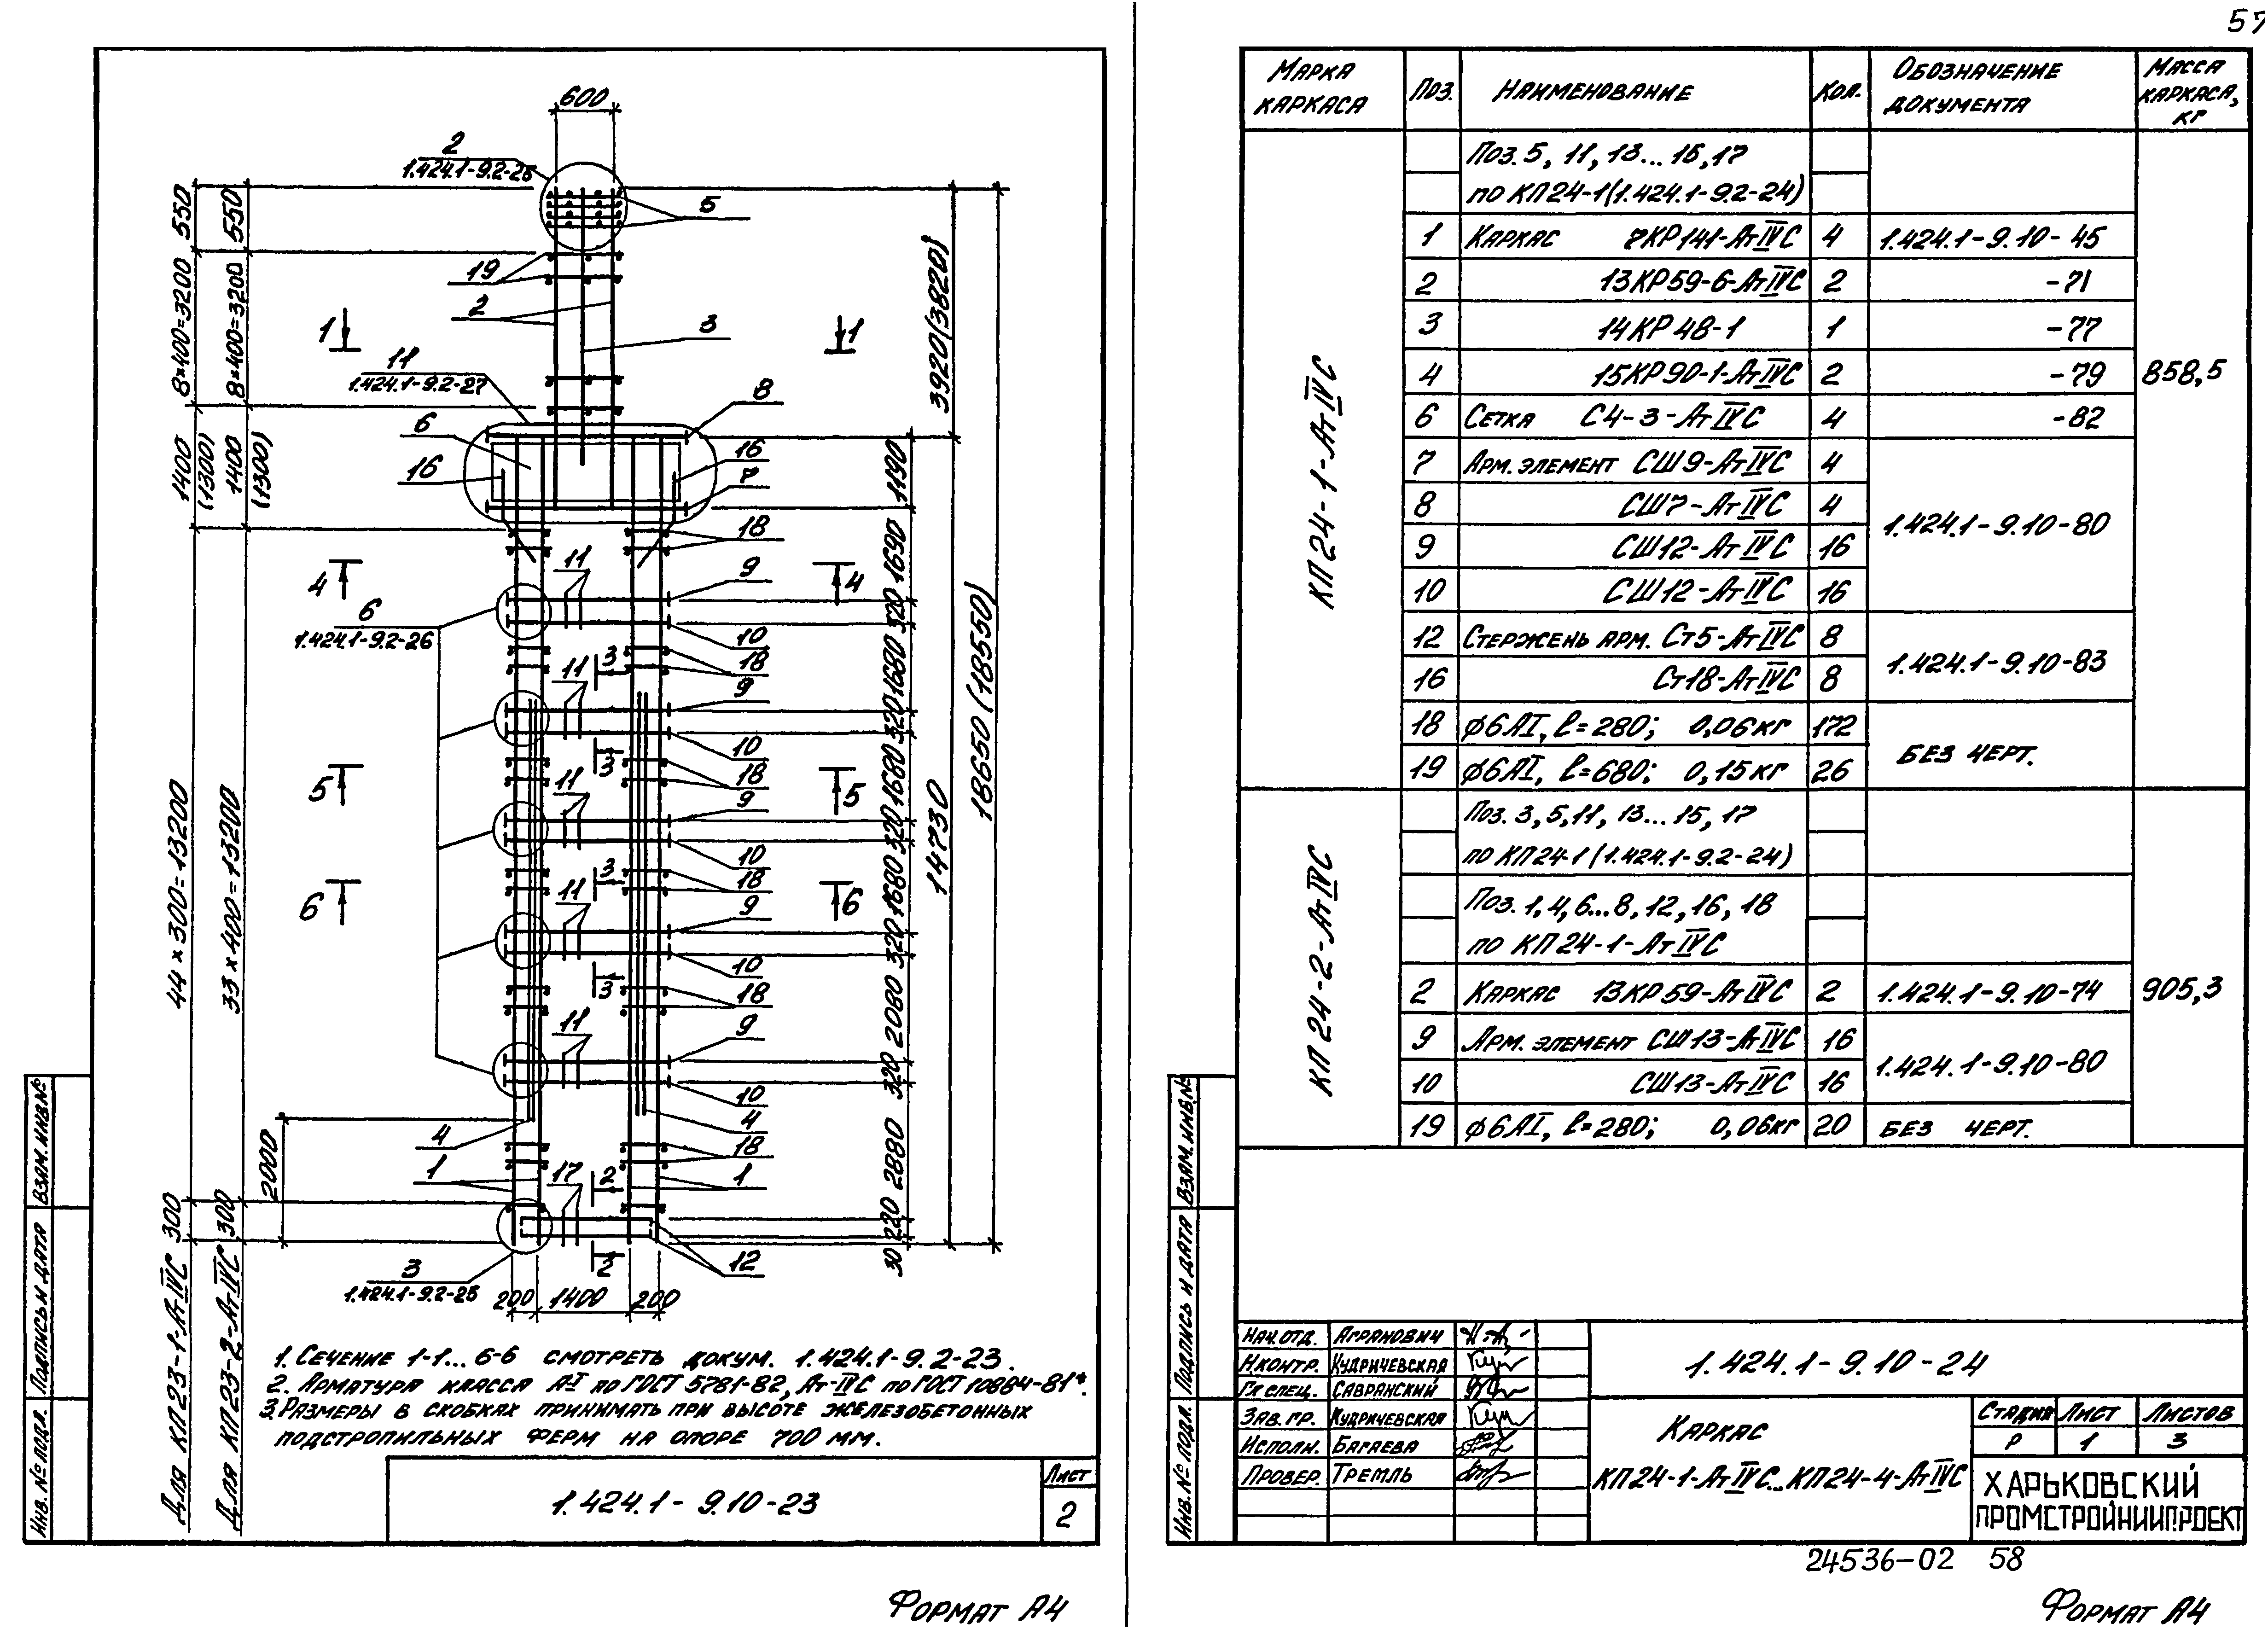 57
600
2
1.424.1-9.2-25
550
550
5
19
8×400=3200
8×400=3200
2
3
1
1
3920(3820)
11
1.424.1-9.2-27
8
6
16
16
7
1400
(1300)
1400
(1300)
1190
18
11
9
4
4
1690
6
1.424.1-9.2-26
320
10
18
3
11
1680
18650 (18550)
9
320
10
3
18
11
5
5
1680
9
320
14730
10
3
18
11
6
6
1680
9
320
10
3
18
11
2080
9
320
10
44×300=13200
33×400=13200
4
4
18
2880
2000
1
17
2
1
300
300
220
30
3
1.424.1-9.2-25
2
12
200
1400
200
Для КП23-1-АтIVС
Для КП23-2-АтIVС
1. Сечение 1-1...6-6 смотреть докум. 1.424.1-9.2-23.
2. Арматура класса А-I по ГОСТ 5781-82, Ат-IVС по ГОСТ 10884-81*.
3. Размеры в скобках принимать при высоте железобетонных
подстропильных ферм на опоре 700 мм.
1.424.1-9.10-23
Лист
2
Инв.№ подл.
Подпись и дата
Взам.инв.№
Формат А4
Марка каркаса
Поз.
Наименование
Кол.
Обозначение документа
Масса каркаса, кг
КП24-1-АтIVС
Поз. 5, 11, 13...15, 17
по КП24-1(1.424.1-9.2-24)
1 Каркас 7КР141-АтIVС 4 1.424.1-9.10-45
2 13КР59-6-АтIVС 2 -71
3 14КР48-1 1 -77
4 15КР90-1-АтIVС 2 -79
858,5
6 Сетка С4-3-АтIVС 4 -82
7 Арм. элемент СШ9-АтIVС 4
8 СШ7-АтIVС 4
1.424.1-9.10-80
9 СШ12-АтIVС 16
10 СШ12-АтIVС 16
12 Стержень арм. Ст5-АтIVС 8
1.424.1-9.10-83
16 Ст18-АтIVС 8
18 ϕ6АI, ℓ=280; 0,06кг 172
без черт.
19 ϕ6АI, ℓ=680; 0,15кг 26
КП24-2-АтIVС
Поз. 3, 5, 11, 13...15, 17
по КП24-1(1.424.1-9.2-24)
Поз. 1, 4, 6...8, 12, 16, 18
по КП24-1-АтIVС
2 Каркас 13КР59-АтIVС 2 1.424.1-9.10-74
905,3
9 Арм. элемент СШ13-АтIVС 16
1.424.1-9.10-80
10 СШ13-АтIVС 16
19 ϕ6АI, ℓ=280; 0,06кг 20 без черт.
Инв.№ подл.
Подпись и дата
Взам.инв.№
Нач.отд. Агранович
Н.контр. Кудричевская
Гл спец. Савранский
Зав.гр. Кудричевская
Исполн. Багаева
Провер. Тремль
1.424.1-9.10-24
Каркас
КП24-1-АтIVС...КП24-4-АтIVС
Стадия Лист Листов
Р 1 3
ХАРЬКОВСКИЙ
ПРОМСТРОЙНИИПРОЕКТ
24536-02 58
Формат А4